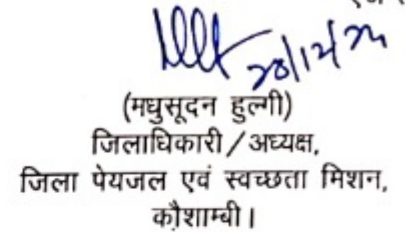 28/12/24
(मधुसूदन हुल्गी)
जिलाधिकारी/अध्यक्ष,
जिला पेयजल एवं स्वच्छता मिशन,
कौशाम्बी।